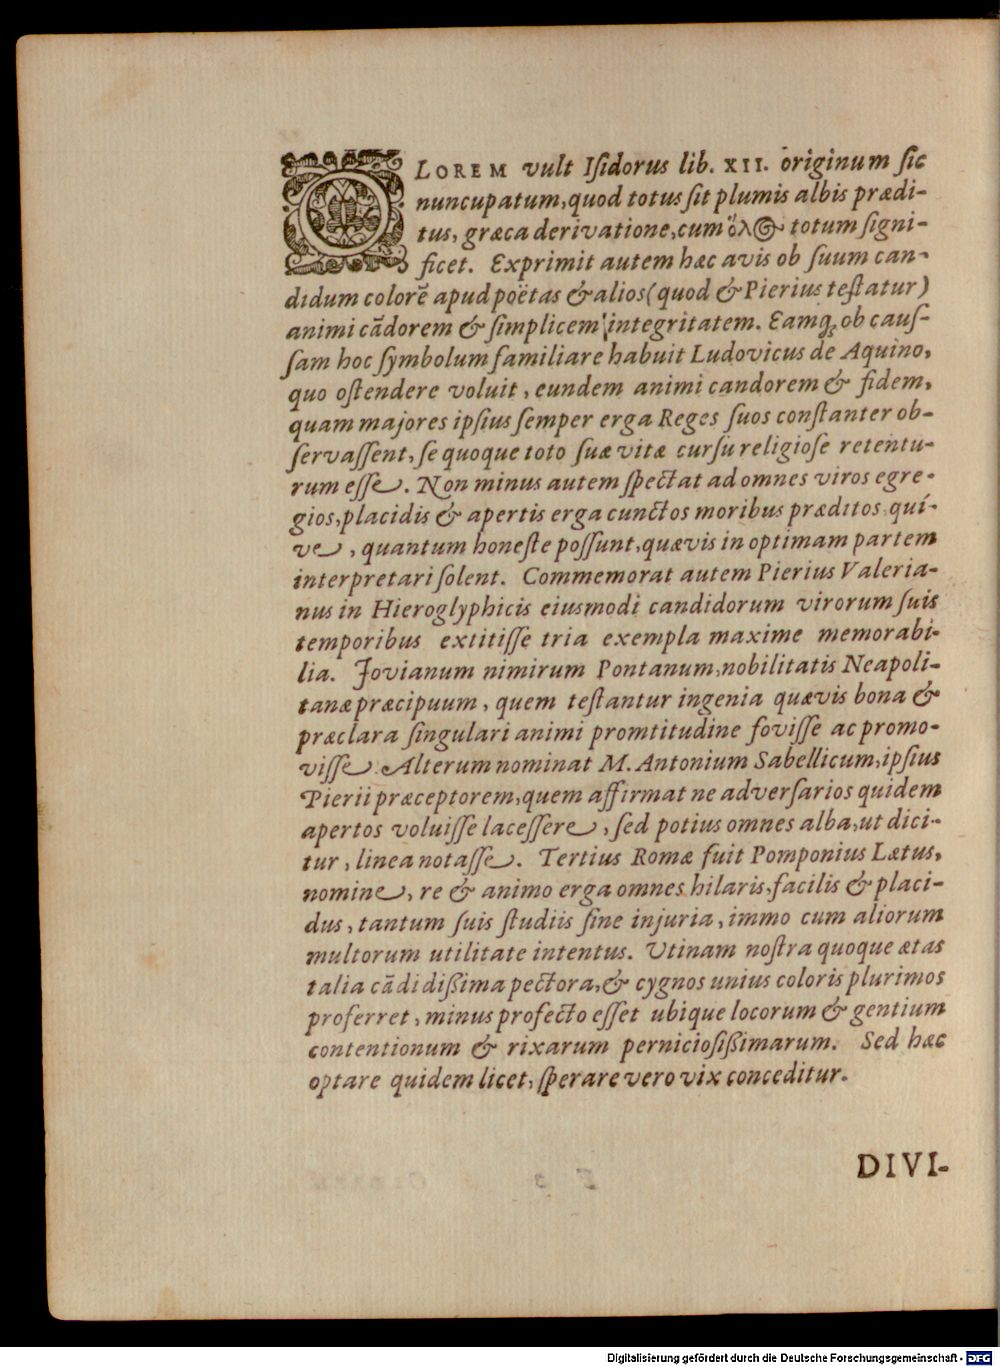 OLOREM vult Iſidorus lib. XII. originum ſic
nuncupatum, quod totus ſit plumis albis prædi-
tus, græca derivatione, cum ὅλ⊚ totum ſigni-
ficet. Exprimit autem hæc avis ob ſuum can-
didum colorē apud poëtas & alios (quod & Pierius teſtatur)
animi cādorem & ſimplicem integritatem. Eamq́; ob cauſ-
ſam hoc ſymbolum familiare habuit Ludovicus de Aquino,
quo oſtendere voluit, eundem animi candorem & fidem,
quam majores ipſius ſemper erga Reges ſuos conſtanter ob-
ſervaſſent, ſe quoque toto ſuæ vitæ curſu religioſe retentu-
rum eſſe. Non minus autem ſpectat ad omnes viros egre-
gios, placidis & apertis erga cunctos moribus præditos, quí-
ve, quantum honeſte poſſunt, quævis in optimam partem
interpretari ſolent. Commemorat autem Pierius Valeria-
nus in Hieroglyphicis eiusmodi candidorum virorum ſuis
temporibus extitiſſe tria exempla maxime memorabi-
lia. Jovianum nimirum Pontanum, nobilitatis Neapoli-
tanæ præcipuum, quem teſtantur ingenia quævis bona &
præclara ſingulari animi promtitudine foviſſe ac promo-
viſſe. Alterum nominat M. Antonium Sabellicum, ipſius
Pierii præceptorem, quem affirmat ne adverſarios quidem
apertos voluiſſe laceſſere, ſed potius omnes alba, ut dici-
tur, linea notaſſe. Tertius Romæ fuit Pomponius Lætus,
nomine, re & animo erga omnes hilaris, facilis & placi-
dus, tantum ſuis ſtudiis ſine injuria, immo cum aliorum
multorum utilitate intentus. Utinam noſtra quoque ætas
talia cādidißima pectora, & cygnos unius coloris plurimos
proferret, minus profecto eſſet ubique locorum & gentium
contentionum & rixarum pernicioſißimarum. Sed hæc
optare quidem licet, ſperare vero vix conceditur.
DIVI-
Digitalisierung gefördert durch die Deutsche Forschungsgemeinschaft - DFG